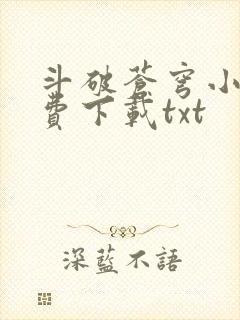 斗破蒼穹小
費下載txt
深藍不語